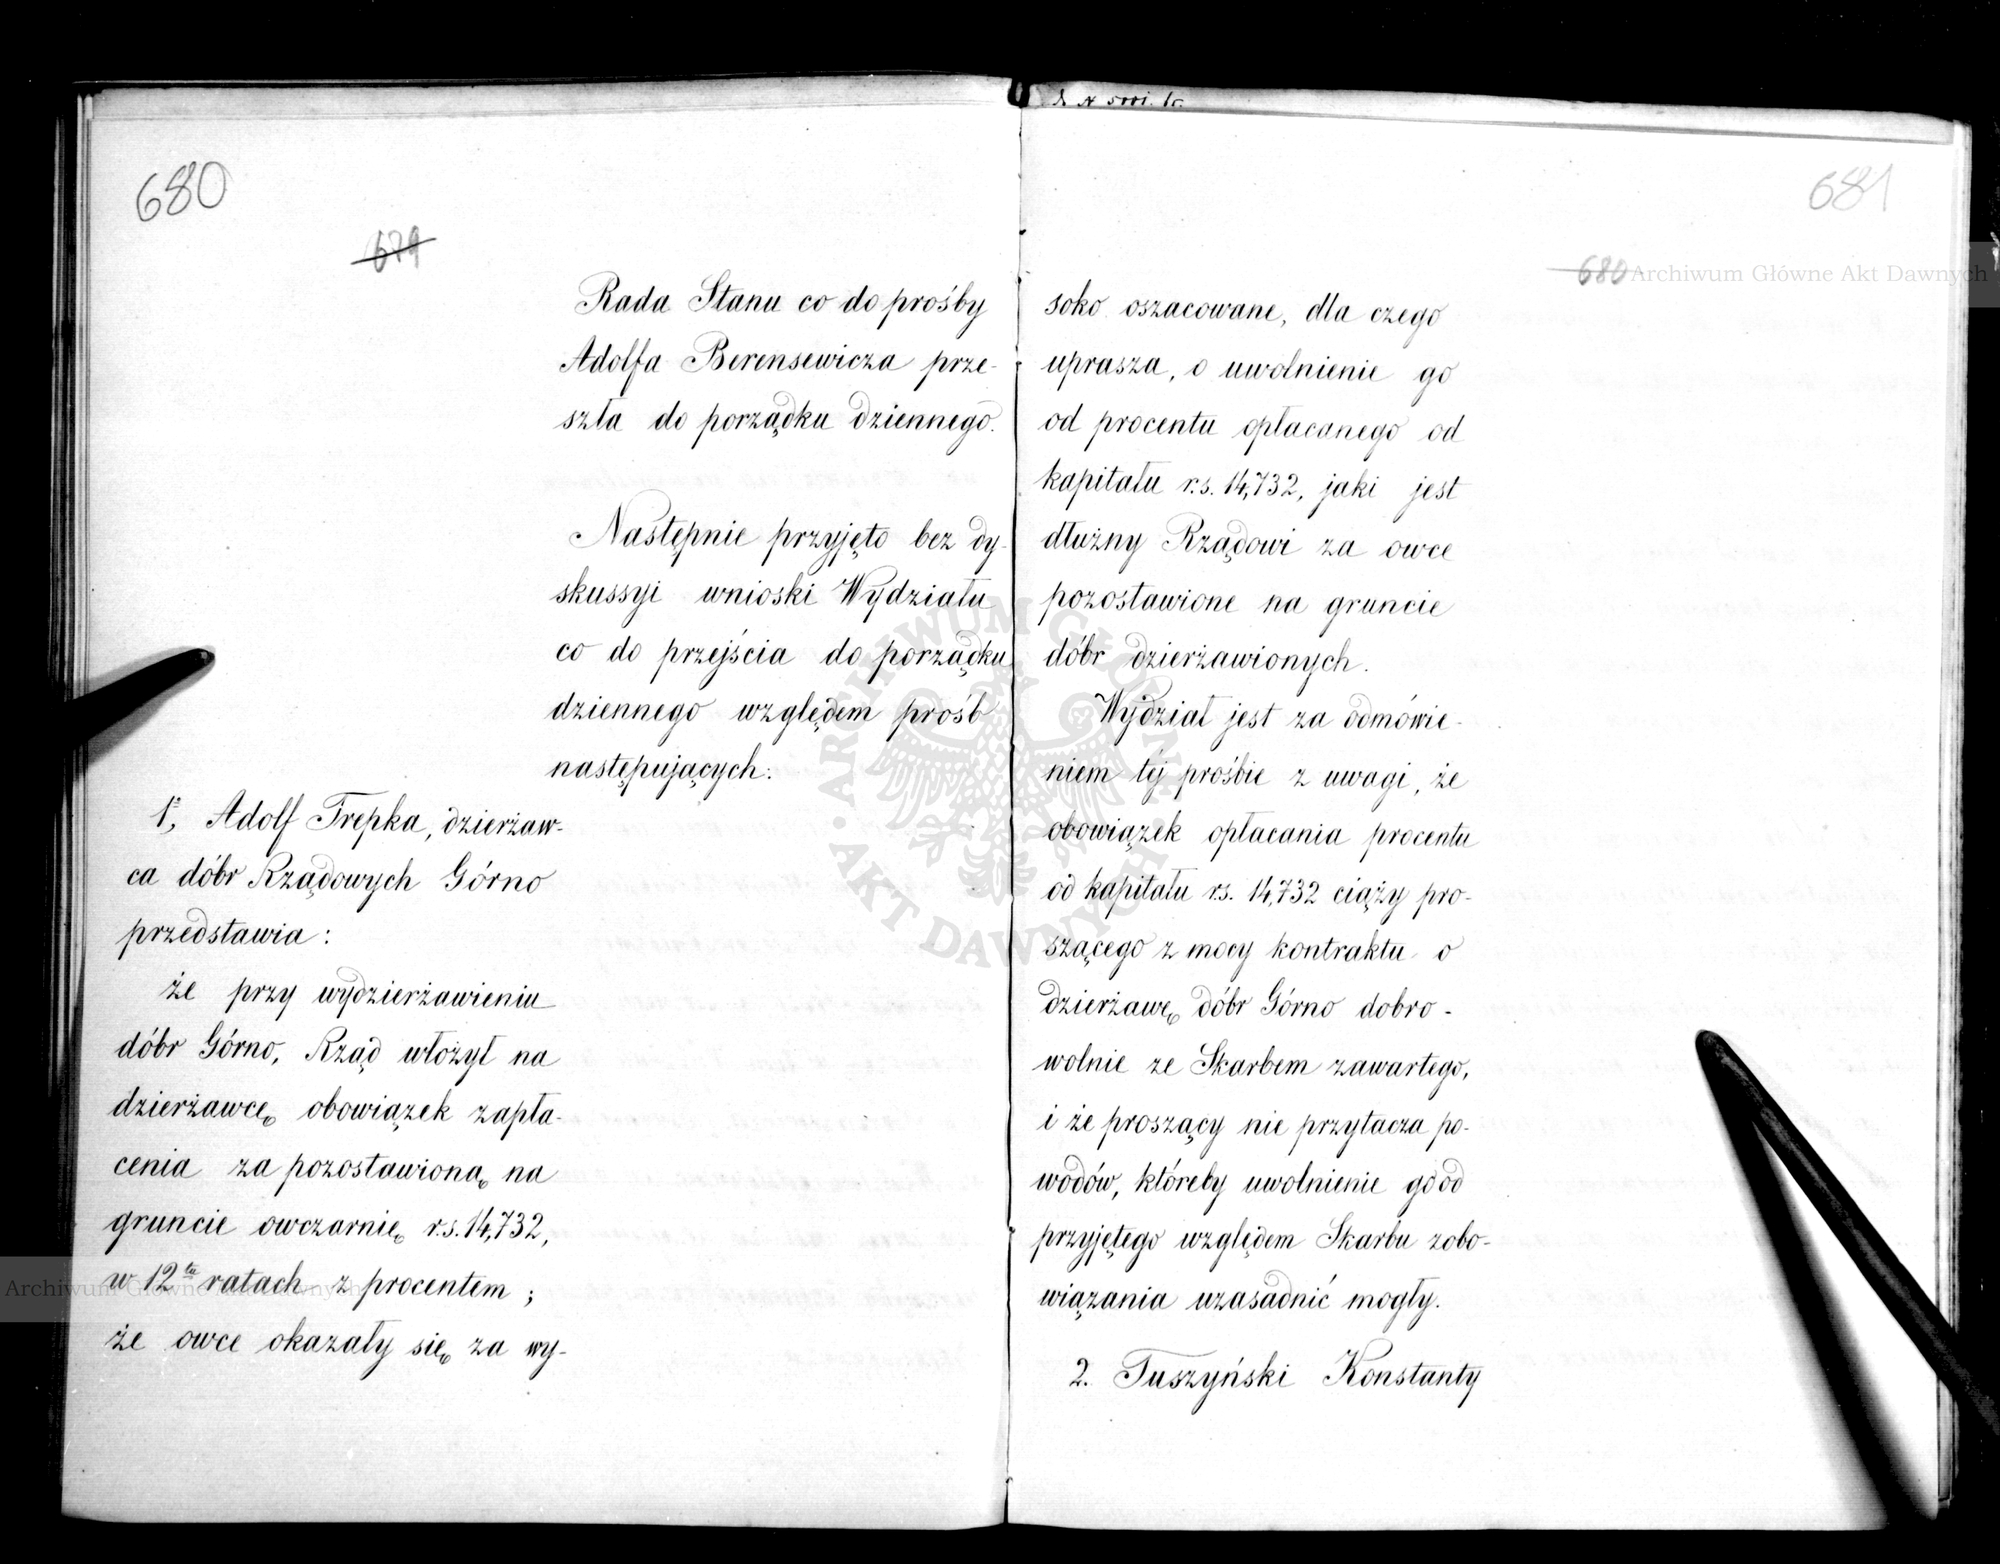 680
679
Rada Stanu co do prośby
Adolfa Berensewicza prze-
szła do porządku dziennego.
Następnie przyjęto bez dy-
skussyi wnioski Wydziału
co do przejścia do porządku
dziennego względem prośb
następujących:
1, Adolf Trepka, dzierżaw-
ca dóbr Rządowych Górno
przedstawia:
że przy wydzierżawieniu
dóbr Górno, Rząd włożył na
dzierżawcę obowiązek zapła-
cenia za pozostawioną na
gruncie owczarnię r.s. 14,732,
w 12tu ratach z procentem;
że owce okazały się za wy-
681
680
soko oszacowane, dla czego
uprasza, o uwolnienie go
od procentu opłacanego od
kapitału r.s. 14,732, jaki jest
dłużny Rządowi za owce
pozostawione na gruncie
dóbr dzierżawionych.
Wydział jest za odmówie-
niem téj prośbie z uwagi, że
obowiązek opłacania procentu
od kapitału rs. 14,732 ciąży pro-
szącego z mocy kontraktu o
dzierżawę dóbr Górno dobro-
wolnie ze Skarbem zawartego,
i że proszący nie przytacza po-
wodów, któreby uwolnienie go od
przyjętego względem Skarbu zobo-
wiązania uzasadnić mogły.
2. Tuszyński Konstanty
Archiwum Główne Akt Dawnych
Archiwum Główne Akt Dawnych
ARCHIWUM GŁÓWNE AKT DAWNYCH